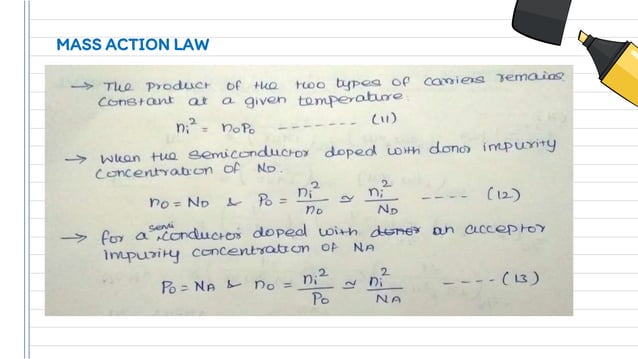 MASS ACTION LAW
→ The product of the two types of carriers remains
constant at a given temperature.
ni² = noPo ------- (11)
→ When the semiconductor doped with donor impurity
concentration of ND.
no = ND & Po = ni²/no ≃ ni²/ND ---- (12)
→ for a semi conductor doped with donor an acceptor
impurity concentration of NA
Po = NA & no = ni²/Po ≃ ni²/NA ---- (13)